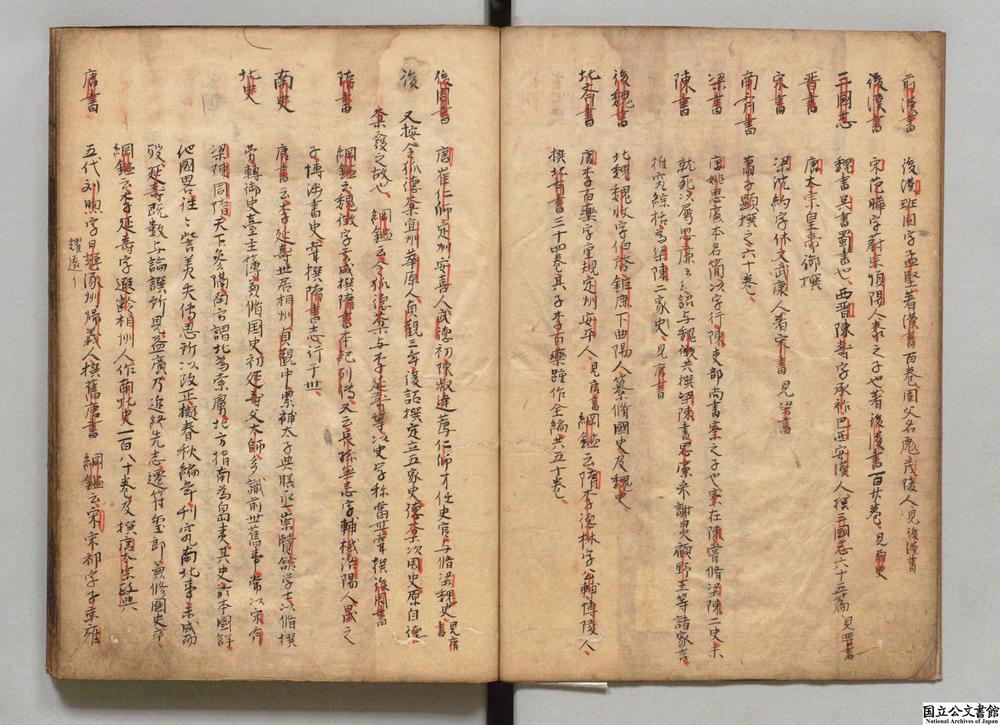 前漢書　後漢班固字孟堅著漢書百卷固父名彪茂陵人見後漢書
後漢書　宋范曄字蔚宗順陽人泰之子也著後漢書百廿卷見南史
三國志　魏書呉書蜀書也西晋陳壽字承祚巴西安漢人撰三國志六十五篇見晋書
晋書　唐太宗皇帝御撰
宋書　梁沈約字休文武康人著宋書見梁書
南斉書　蕭子顕撰之六十卷
梁書　唐姚思廉本名簡以字行陳吏部尚書察之子也察在陳嘗脩梁陳二史未
陳書　就死次属思廉詔与魏徴共撰梁陳書思廉采謝炅顧野王等諸家言
推究綜括為梁陳二家史見唐書
後魏書　北魏魏收字伯啓鉅鹿下曲陽人纂脩國史及魏史
北斉書　唐李百藥字重規定州安平人見唐書綱鑑云隋李德林字公輔博陵人
撰北斉書三十四卷其子李百藥踵作全編共五十卷
後周書　唐崔仁師定州安喜人武徳初陳叔達薦仁師才任史官与脩梁魏史見唐書
後　又按令狐徳棻宜州華原人貞觀三年復詔撰定立五家史徳棻次周史原自徳
棻發之故也　綱鑑云令狐徳棻与李延壽等以史学称當世嘗撰後周書
隋書　綱鑑云魏徴字玄成撰隋書本紀列傳又云長孫無忌字輔機洛陽人累之
子博渉書史嘗撰隋書志行于世
南史　唐書云李延壽世居相州貞觀中累補太子典膳丞崇賢館学士以脩撰
北史　労轉御史臺主簿兼脩国史初延壽父大師多識前世舊事常以宋斉
梁陳周隋天下參隔南方謂北為索虜北方指南為島夷其史於本國詳
他國畧往々訾美失傳思所以改正擬春秋編年刊究南北事未成而
歿延壽既數与論譔所見益廣乃追終先志遷符璽郎兼修國史卒
綱鑑云李延壽字遐齡相州人作南北史一百八十卷及撰唐太宗政典
唐書　五代刘煦字日耀涿州歸義人撰舊唐書　綱鑑云宋宋祁字子京雍
耀遠
国立公文書館
National Archives of Japan